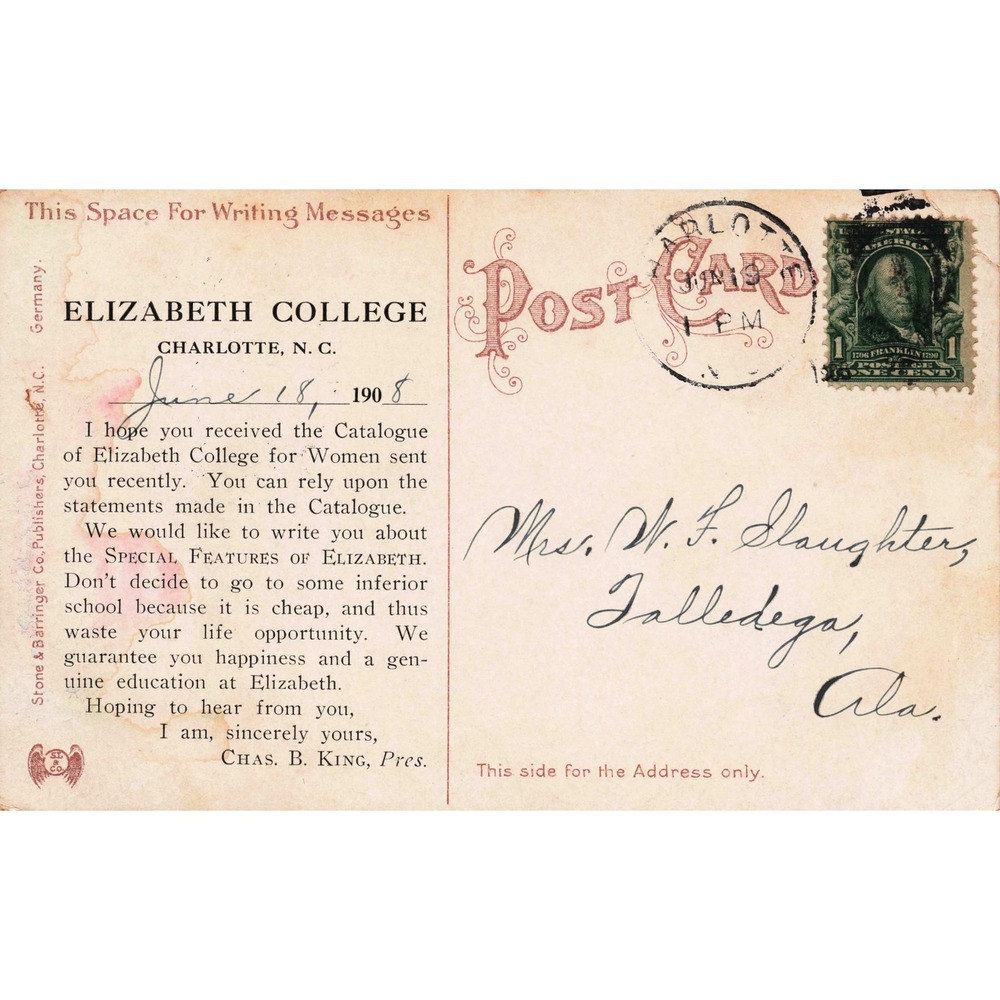 This Space For Writing Messages
ELIZABETH COLLEGE
CHARLOTTE, N. C.
June 18, 1908
I hope you received the Catalogue
of Elizabeth College for Women sent
you recently. You can rely upon the
statements made in the Catalogue.
We would like to write you about
the SPECIAL FEATURES OF ELIZABETH.
Don't decide to go to some inferior
school because it is cheap, and thus
waste your life opportunity. We
guarantee you happiness and a gen-
uine education at Elizabeth.
Hoping to hear from you,
I am, sincerely yours,
CHAS. B. KING, Pres.
Stone & Barringer Co., Publishers, Charlotte, N.C. Germany.
POST CARD
CHARLOTTE
JUN 19
1 PM
N C
AMERICA
1 1706 FRANKLIN 1790 1
POSTAGE
ONE CENT
Mrs. W. F. Slaughter,
Talledega,
Ala.
This side for the Address only.